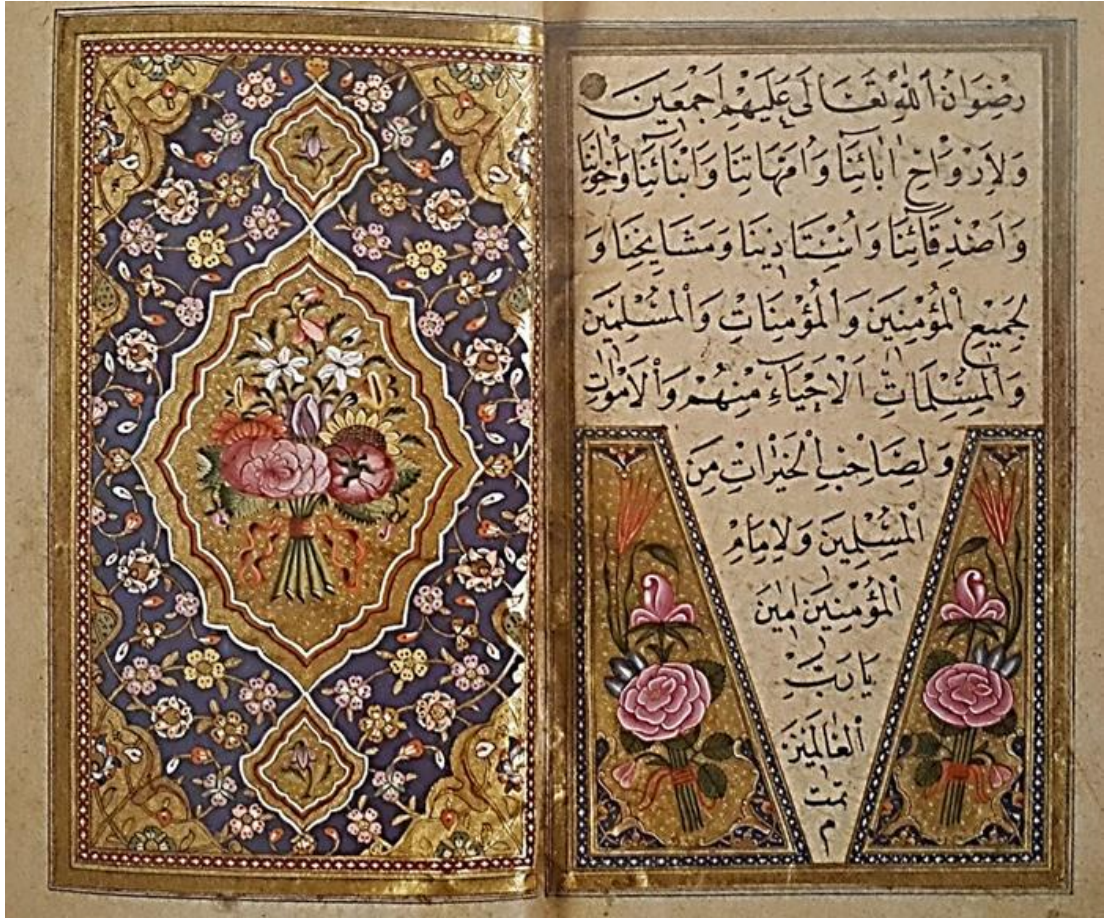 رِضْوَانُ ٱللّٰهِ تَعَالَى عَلَيْهِمْ اَجْمَعِينَ
وَلِاَرْوَاحِ اٰبَائِنَا وَاُمَّهَاتِنَا وَاَبْنَائِنَا وَاِخْوَانِنَا
وَاَصْدِقَائِنَا وَاُسْتَاذِينَا وَمَشَايِخِنَا وَ
لِجَمِيعِ الْمُؤْمِنِينَ وَالْمُؤْمِنَاتِ وَالْمُسْلِمِينَ
وَالْمُسْلِمَاتِ اَلْاَحْيَاءِ مِنْهُمْ وَالْاَمْوَاتِ
وَلِصَاحِبِ الْخَيْرَاتِ مِنَ
الْمُسْلِمِينَ وَلِاِمَامِ
الْمُؤْمِنِينَ اٰمِينَ
يَا رَبَّ
الْعَالَمِينَ
تمت
م